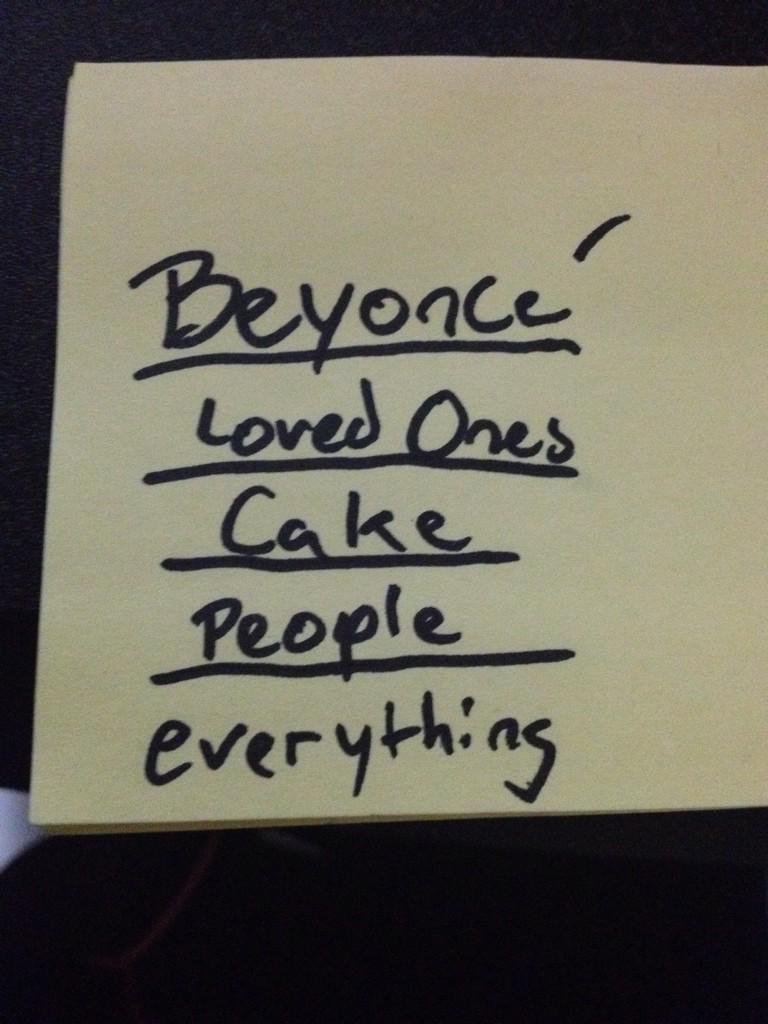 Beyoncé
Loved Ones
Cake
People
everything